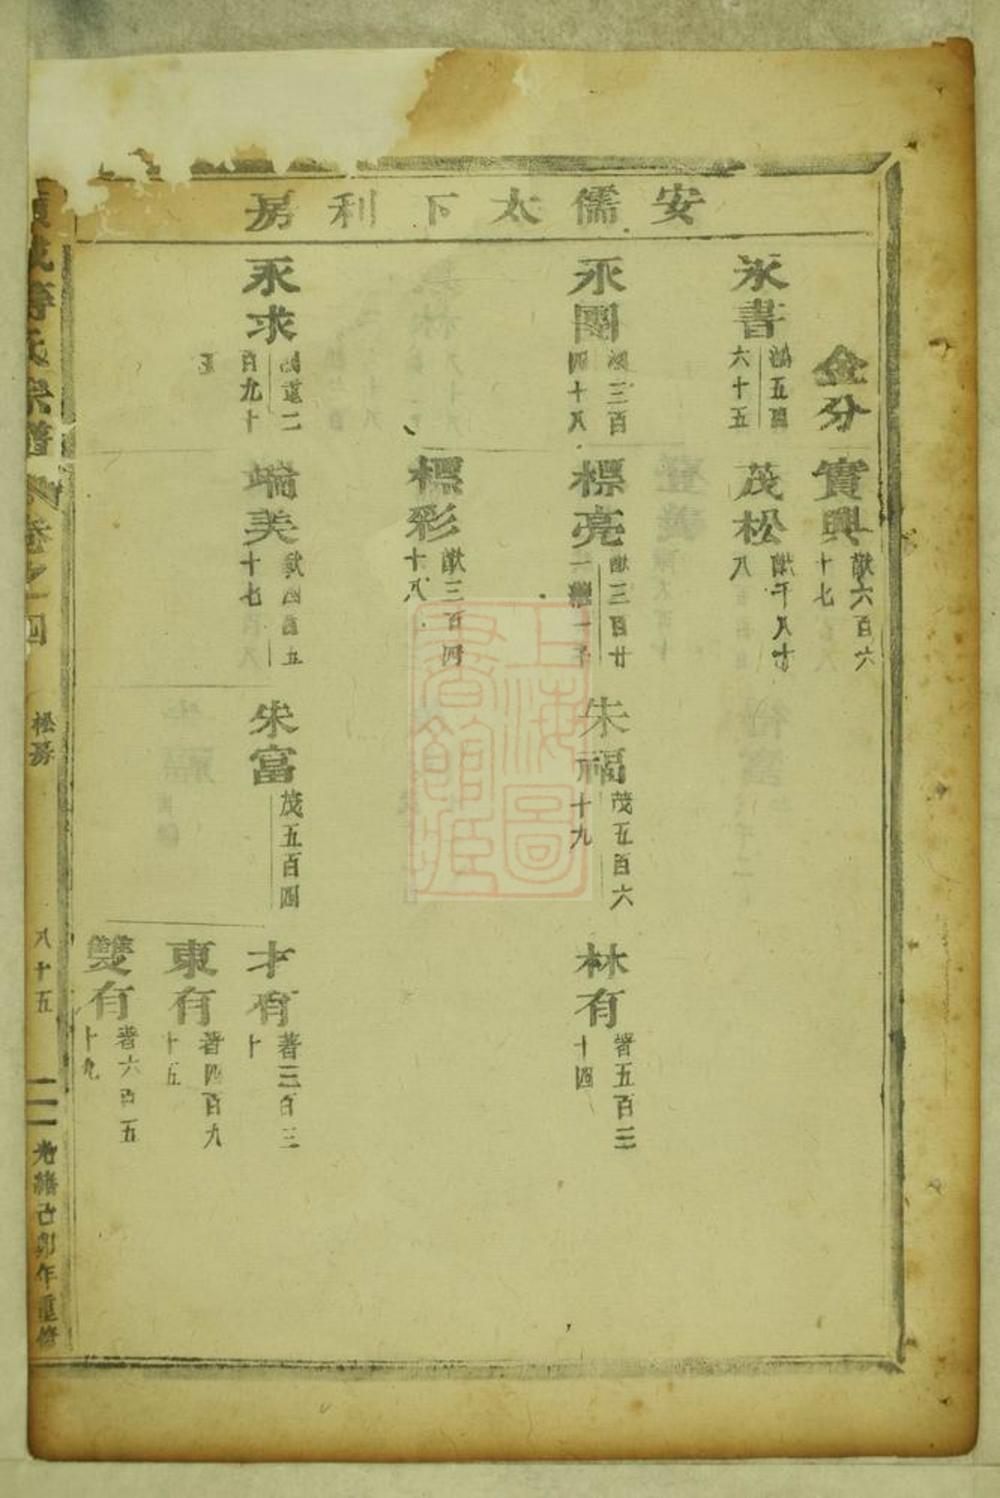 安儒太下利房
金分
實興
獻六百六
十七
永書
獻五百
六十五
茂松
獻千八十
八
永團
獻三百
四十八
標亮
獻三百廿
一繼一子
朱福
茂五百六
十九
林有
著五百三
十四
標彩
獻三百四
十八
永求
獻這二
百九十
五
端美
獻四百五
十七
朱富
茂五百四
才有
著三百三
十
東有
著四百九
十五
雙有
著六百五
十九
氏宗譜
卷之四
松房
八十五
光緒己卯年重修
上海圖書館藏